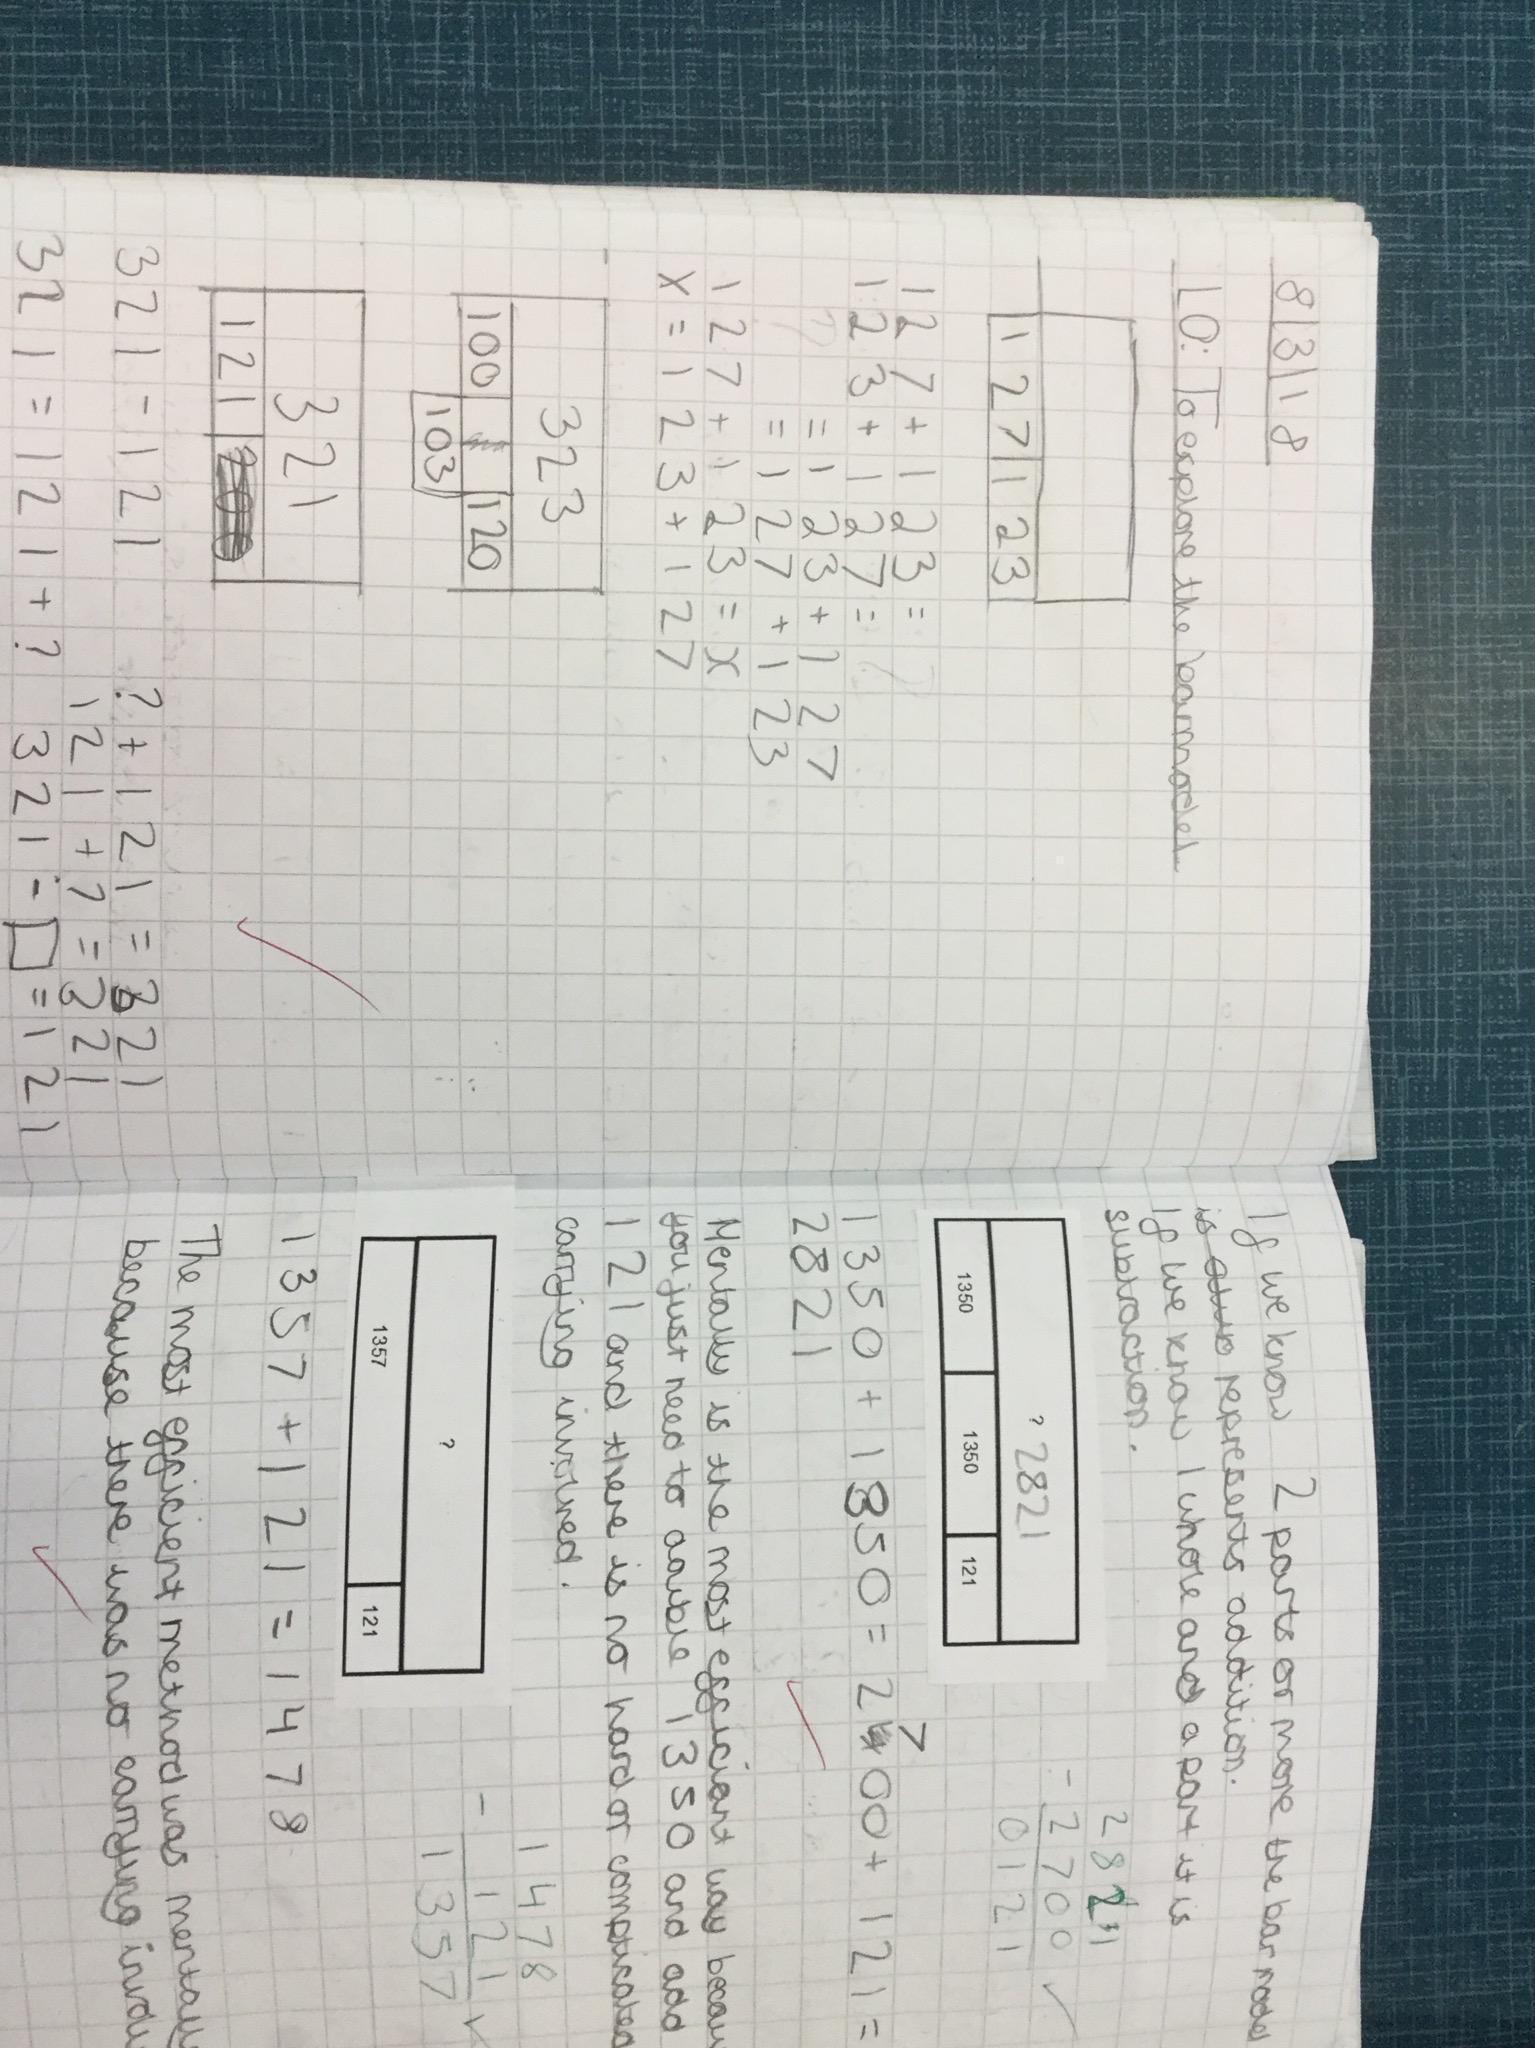 8/3/18
LO: To explore the barmodel
127 123
127 + 123 = ?
123 + 127 =
? = 123 + 127
= 127 + 123
127 + 123 = x
x = 123 + 127
323
100 120
103
321
121
321 - 121
? + 121 = 321
121 + ? = 321
321 = 121 + ?
321 - □ = 121
If we know 2 parts or more the bar model
is represents addition.
If we know 1 whole and a part it is
subtraction.
2821
- 2700
0121
? 2821
1350 1350 121
1350 + 1350 = 2700 + 121 =
2821
Mentally is the most efficient way becau
you just need to double 1350 and add
121 and there is no hard or complicated
carrying involved.
1478
- 121
1357
?
1357 121
1357 + 121 = 1478
The most efficient method was mentally
because there was no carrying involv